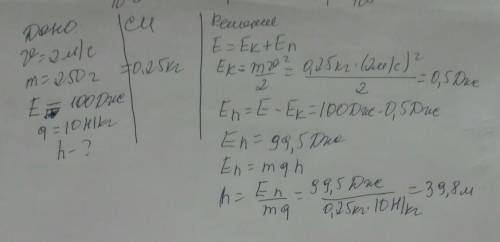 Дано
v = 2 м/с
m = 250 г
E = 100 Дж
g = 10 Н/кг
h - ?
СИ
= 0,25 кг
Решение
E = Eк + Eп
Eк = mv²/2 = 0,25кг · (2м/с)²/2 = 0,5 Дж
Eп = E - Eк = 100 Дж - 0,5 Дж
Eп = 99,5 Дж
Eп = mgh
h = Eп/mg = 99,5 Дж/0,25кг · 10 Н/кг = 39,8 м